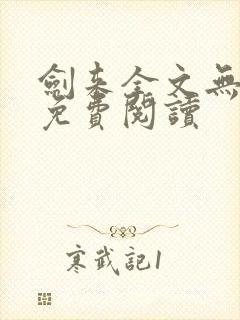 劍来全文無
免費閱讀
寒武記1